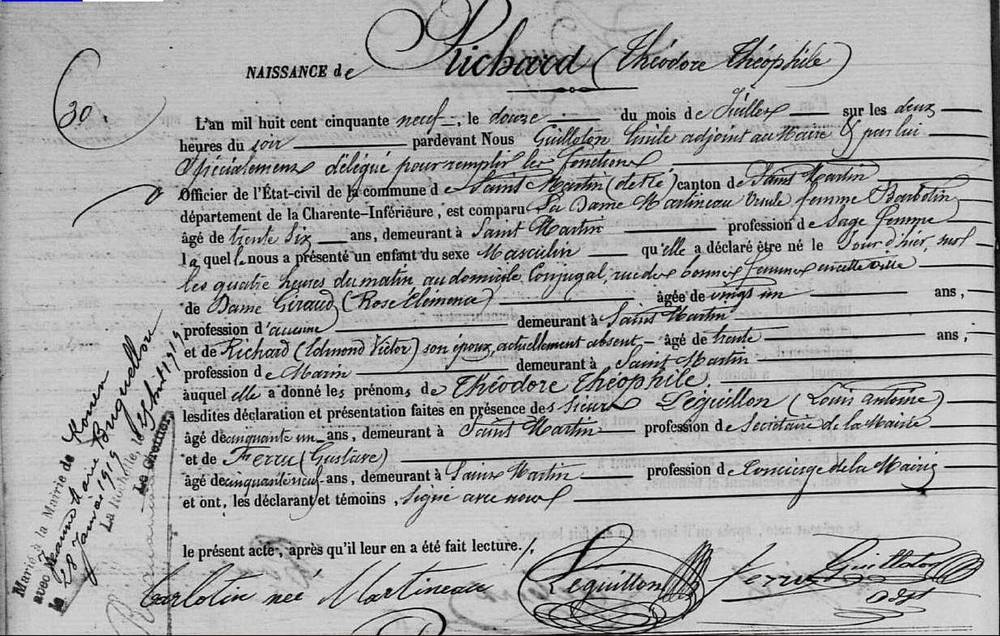 NAISSANCE de Richard (Théodore Théophile)
30.
L'an mil huit cent cinquante neuf, le douze du mois de Juillet sur les deux
heures du soir pardevant Nous Guilloton Emile adjoint au Maire & par lui
Spécialement délégué pour remplir les fonctions
Officier de l'État-civil de la commune de Saint Martin (de Ré) canton de Saint Martin
département de la Charente-Inférieure, est comparu La Dame Martineau Ursule femme Barbotin
âgé de trente Six ans, demeurant à Saint Martin profession de Sage femme
laquelle nous a présenté un enfant du sexe Masculin qu'elle a déclaré être né le Jour d'hier, sur
les quatre heures du matin au domicile Conjugal, rue des bonnes femmes en cette ville
de Dame Giraud (Rose Clémence) âgée de vingt un ans,
profession d'aucune demeurant à Saint Martin
et de Richard (Edmond Victor) son époux, actuellement absent, âgé de trente ans;
profession de Marin demeurant à Saint Martin
auquel elle a donné les prénoms de Théodore Théophile.
lesdites déclaration et présentation faites en présence des sieurs Léguillon (Louis Antoine)
âgé de cinquante un ans, demeurant à Saint Martin profession de Secrétaire de la Mairie
et de Ferru (Gustave)
âgé de cinquante neuf ans, demeurant à Saint Martin profession de Concierge de la Mairie
et ont, les déclarant et témoins, Signé avec nous
le présent acte, après qu'il leur en a été fait lecture./.
Barbotin née Martineau Léguillon Ferru Guilloton
adjt
Marié à la Mairie de Rouen
avec Jeanne Marie
le 28 Janvier 1919
La Rochelle, le 1919
Le Greffier,